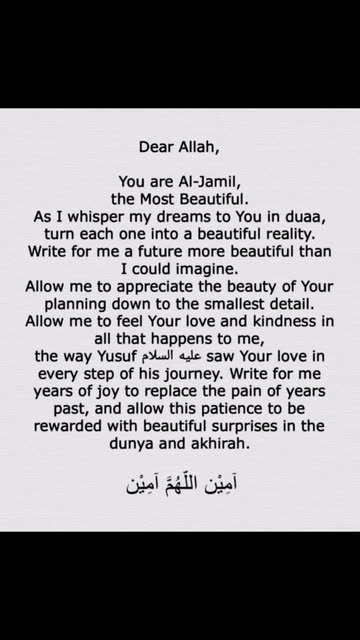 Dear Allah,
You are Al-Jamil,
the Most Beautiful.
As I whisper my dreams to You in duaa,
turn each one into a beautiful reality.
Write for me a future more beautiful than
I could imagine.
Allow me to appreciate the beauty of Your
planning down to the smallest detail.
Allow me to feel Your love and kindness in
all that happens to me,
the way Yusuf عليه السلام saw Your love in
every step of his journey. Write for me
years of joy to replace the pain of years
past, and allow this patience to be
rewarded with beautiful surprises in the
dunya and akhirah.
آمِيْن اللَّهُمَّ آمِيْن